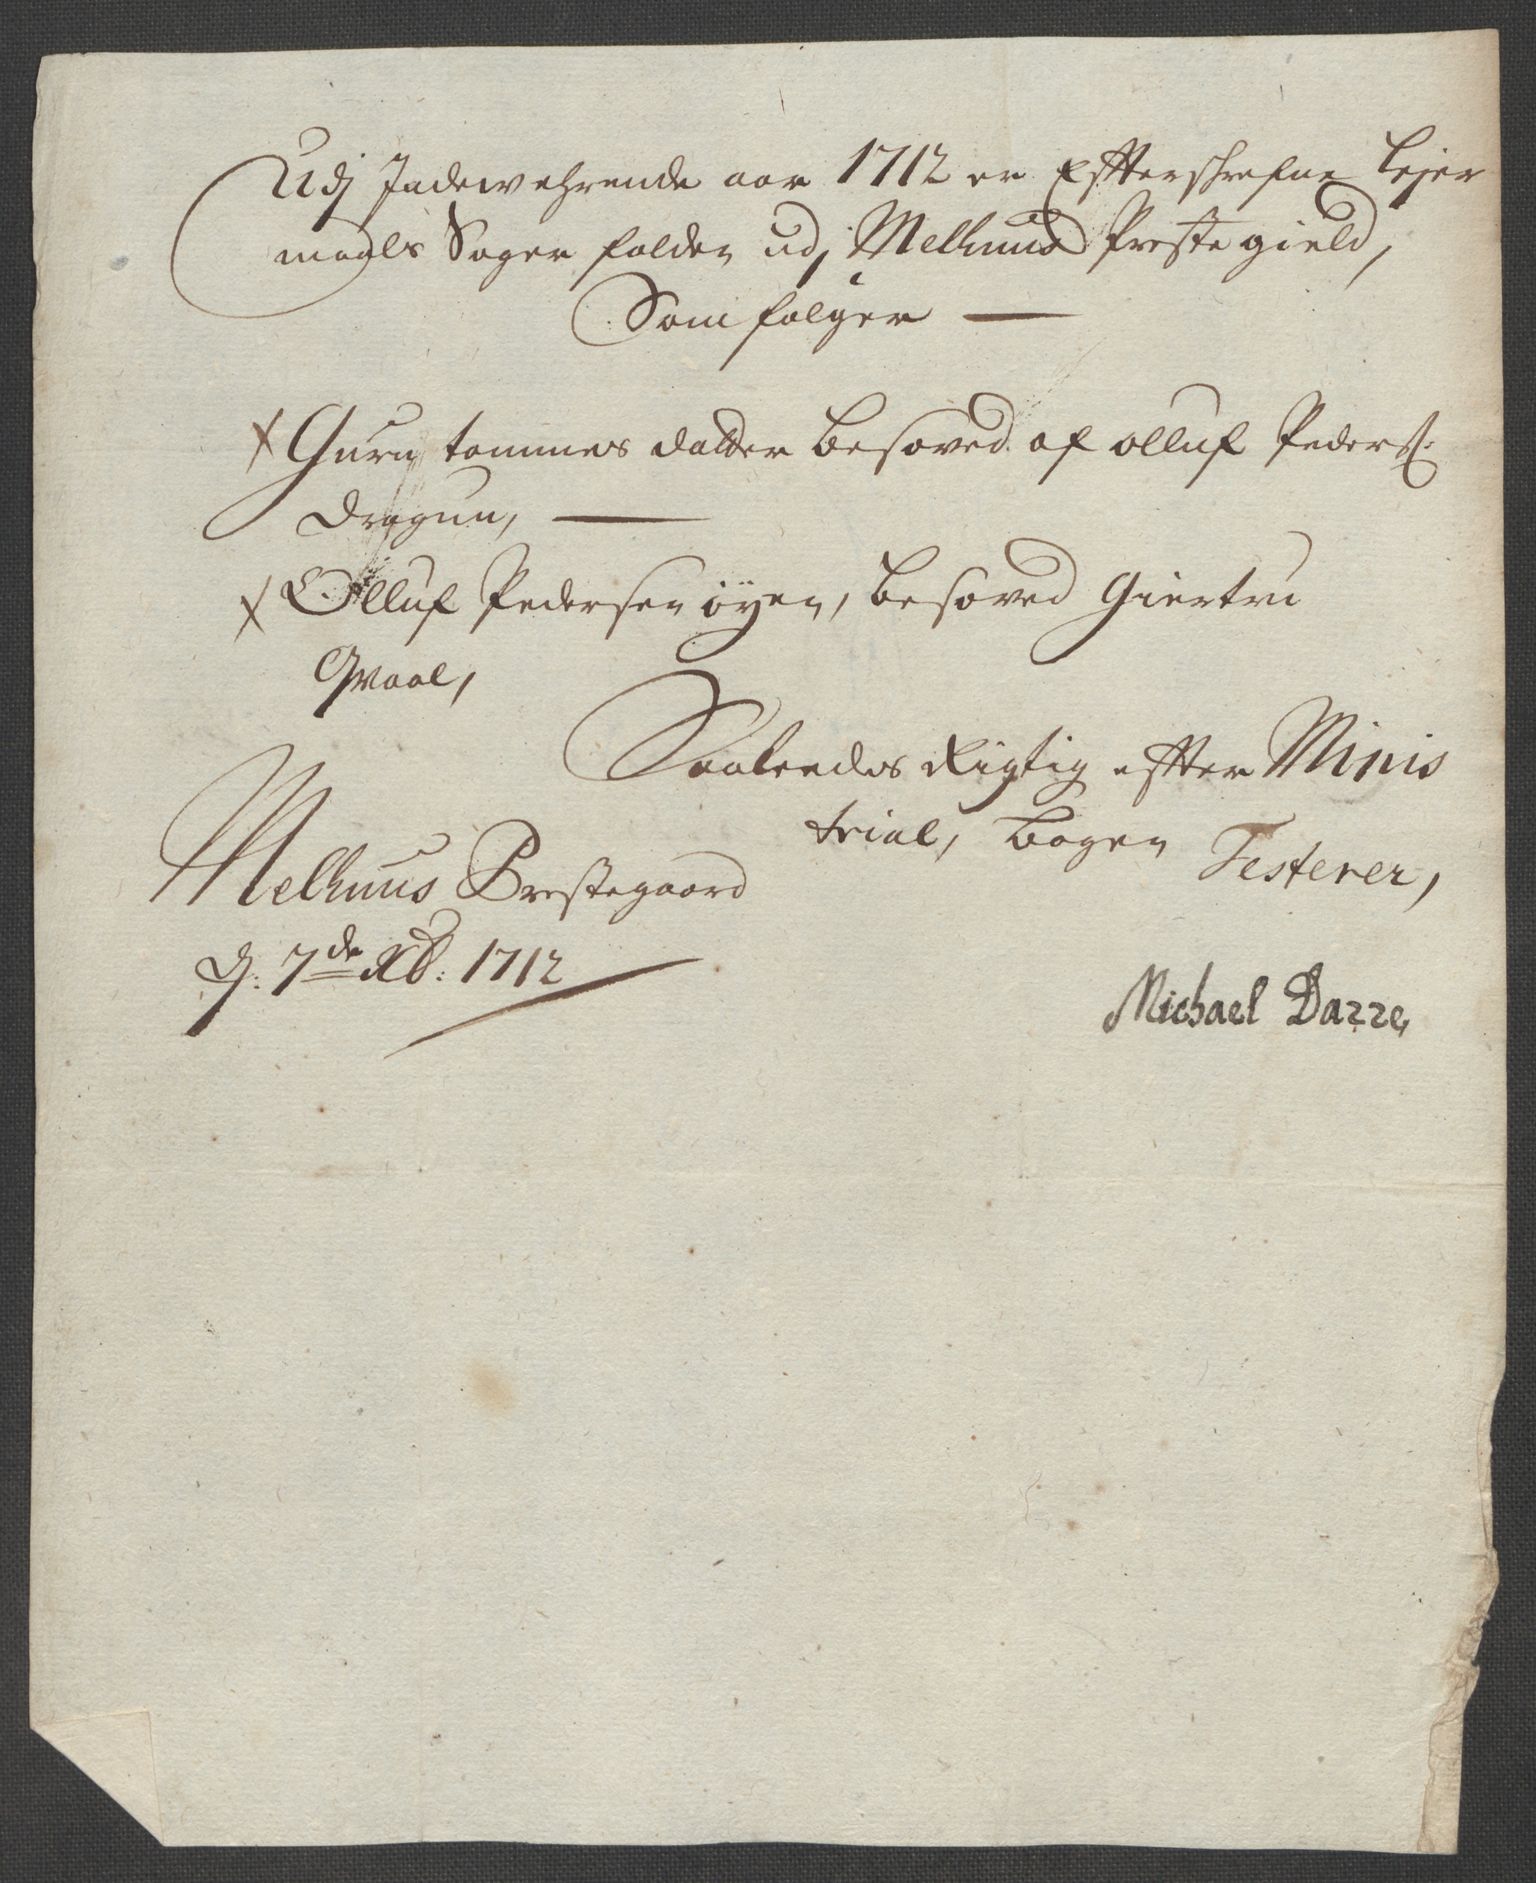 Udj Indewehrende aar 1712 er Effterschrefne Lejer
maals Sager falden udj Melhuus Prestegield,
Som følger
Guru tommes datter besoved af olluf Peders:
Dragun,
Olluf Pedersen øyen, besoved Giertru
Qvaal,
Saaledes Rigtig effter Minis
trial, bogen Testerer,
Melhuus Prestegaard
d: 7de Xb: 1712
Michael Darre,